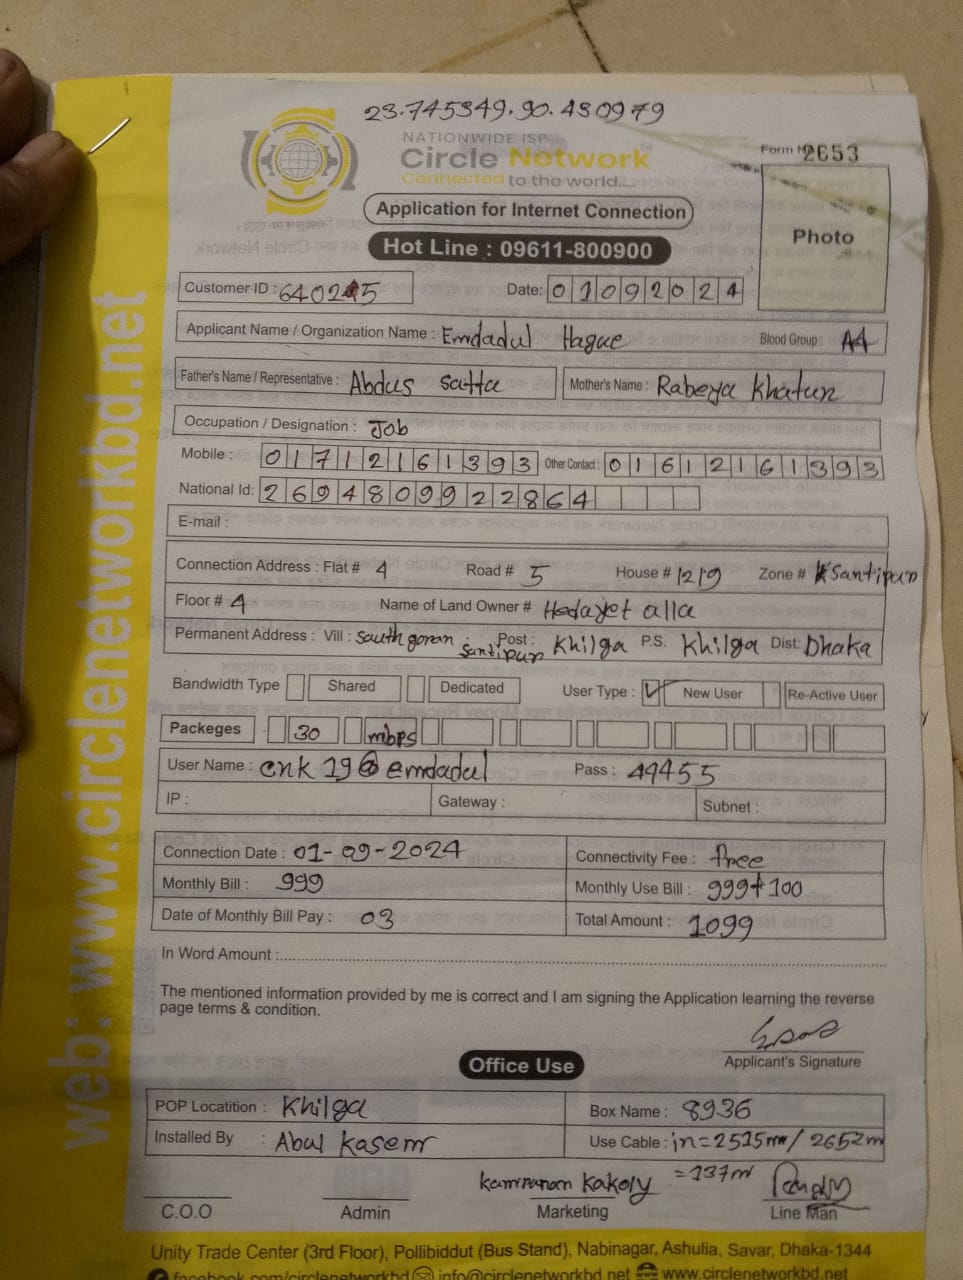 23.745349.90.430979
NATIONWIDE ISP
Circle Network
Connected to the world....
Form No 2653
Application for Internet Connection
Photo
Hot Line : 09611-800900
Customer ID : 640215
Date: 01092024
Applicant Name / Organization Name : Emdadul Haque
Blood Group :
Father's Name / Representative : Abdus satta
Mother's Name : Rabeya Khatun
Occupation / Designation : Job
Mobile : 01712161393 Other Contact : 01612161393
National Id: 2694809922864
E-mail :
Connection Address : Flat # 4 Road # 5 House # 1219 Zone # Santipur
Floor # 4 Name of Land Owner # Hedayet alla
Permanent Address : Vill : South goran santipur Post : Khilga P.S. Khilga Dist: Dhaka
Bandwidth Type Shared Dedicated User Type : New User Re-Active User
Packeges 30 mbps
User Name : cnk19@emdadul Pass : 49455
IP : Gateway : Subnet :
Connection Date : 01-09-2024 Connectivity Fee : free
Monthly Bill : 999 Monthly Use Bill : 999+100
Date of Monthly Bill Pay : 03 Total Amount : 1099
In Word Amount :
The mentioned information provided by me is correct and I am signing the Application learning the reverse
page terms & condition.
Applicant's Signature
Office Use
POP Locatition : Khilga Box Name : 8936
Installed By : Abul Kasem Use Cable : in=2515m / 2652m
=137m
kamrunam Kakoly
C.O.O Admin Marketing Line Man
Unity Trade Center (3rd Floor), Pollibiddut (Bus Stand), Nabinagar, Ashulia, Savar, Dhaka-1344
facebook.com/circlenetworkbd info@circlenetworkbd.net www.circlenetworkbd.net
web: www.circlenetworkbd.net